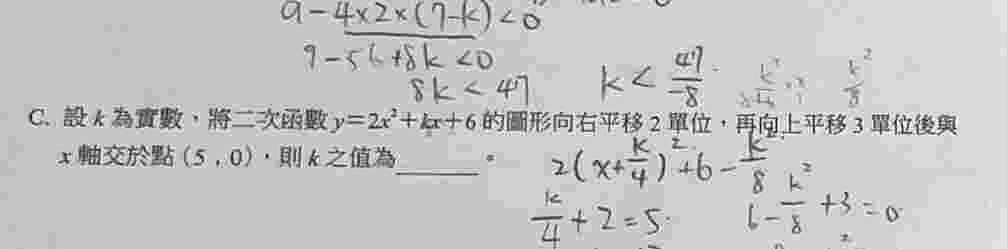 9-4×2×(7-k)<0
9-56+8k<0
8k<47
k<47/8.
C. 設 k 為實數，將二次函數 y=2x²+kx+6 的圖形向右平移 2 單位，再向上平移 3 單位後與
x 軸交於點 (5,0)，則 k 之值為______。
2(x+k/4)²+6-k²/8
k/4+2=5.
6-k²/8+3=0